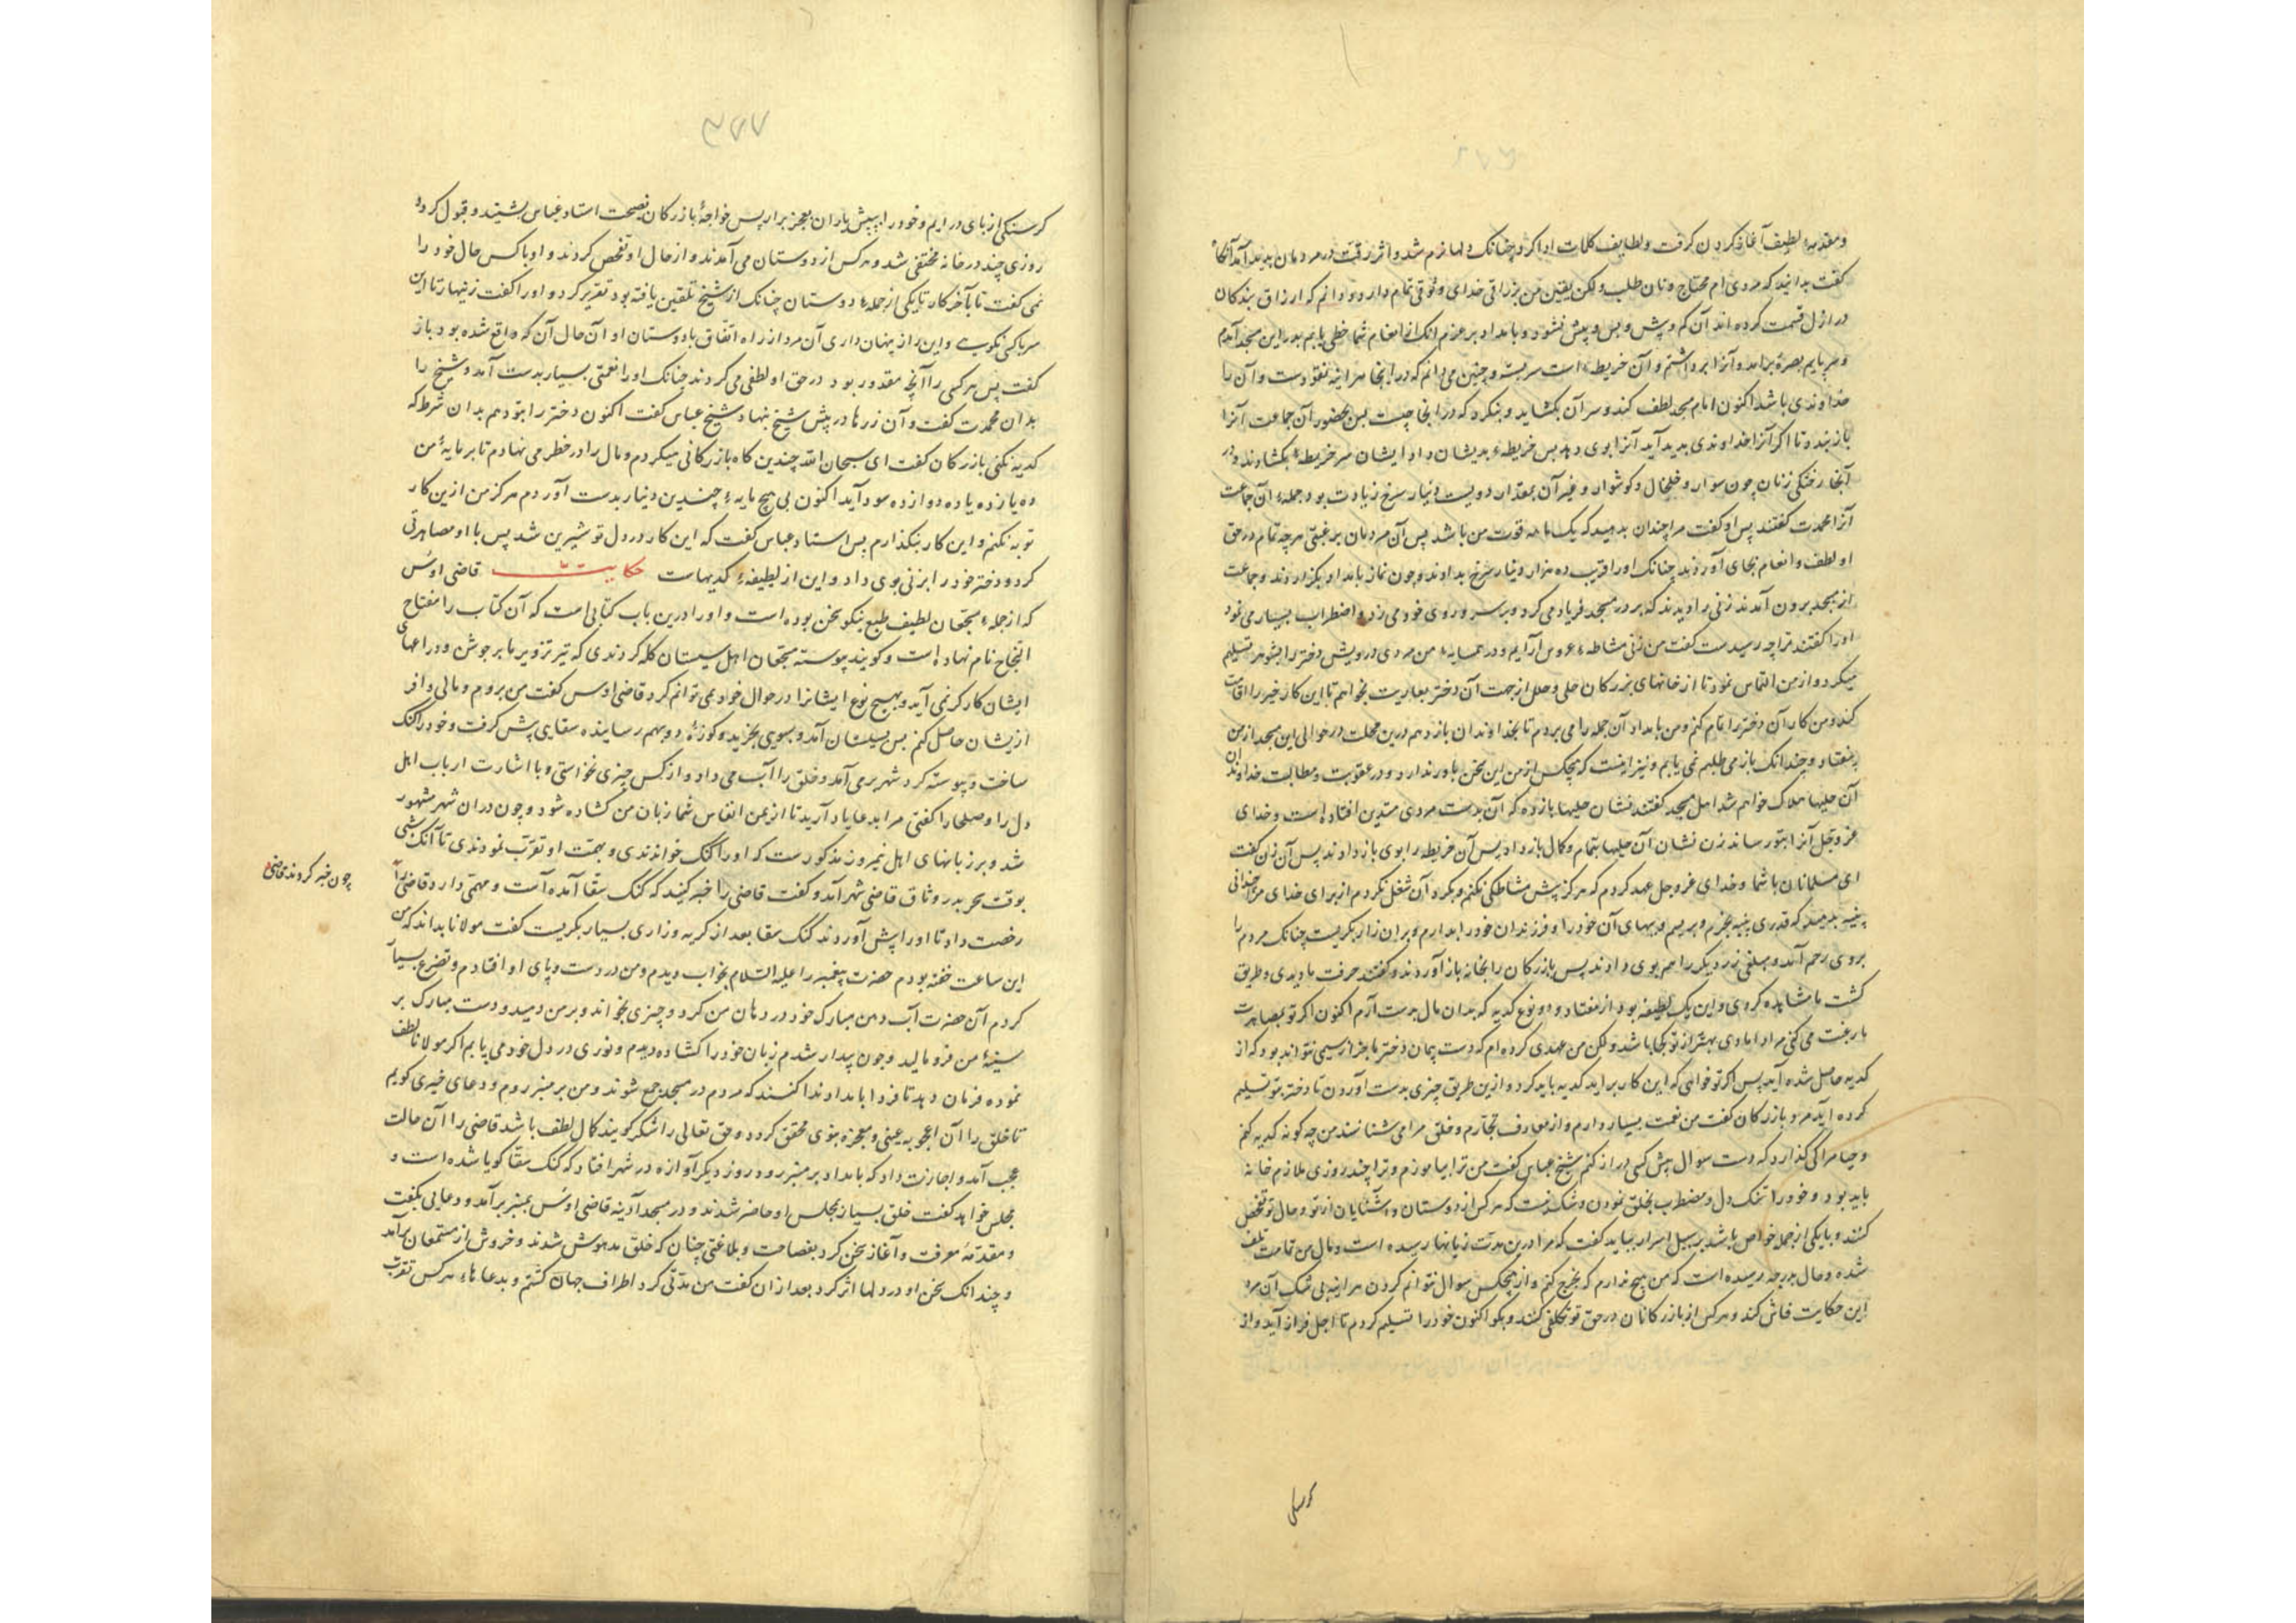 و مقدمهٔ لطیف آغاز کردن گرفت و لطایف کلمات ادا کرد چنانک دلها نرم شد و اثر رقت در مردمان پدید آمد آنگاه
گفت بدانید که مردی ام محتاج و نان طلب ولکن یقین من برزاقی خدای وثوقی تمام دارد و دانم که ارزاق بندگان
در ازل قسمت کرده اند آن کم و بیش و پس و پیش نشود و بامداد بر عزم آنک از انعام شما حظی یابم بدر این مسجد آمدم
و سر پایم بصرهٔ برآمد و آنرا برداشتم و آن خریطهٔ است سر بسته و چنین می دانم که در اینجا هرآینه نقودست و آن را
خداوندی باشد اکنون امام مسجد لطف کند و سر آن بگشاید و بنگرد که در انجا چیست پس بحضور آن جماعت آنرا
باز بندد تا اگر آنرا خداوندی پدید آید آنرا بوی دهد پس خریطهٔ بدیشان داد ایشان سر خریطهٔ بگشادند و در
آنجا رختکی زنان چون سوار و خلخال و گوشوار و غیر آن بمقدار دویست دینار سرخ زیادت بود جملهٔ آن جماعت
آنرا محمدت گفتند پس او گفت مرا چندان بدهید که یک ماهه قوت من باشد پس آن مردمان برغبتی هرچه تمام در حق
او لطف و انعام بجای آوردند چنانک او را قریب ده هزار دینار سرخ بدادند و چون نماز بامداد بگزاردند و جماعت
از مسجد برون آمدند زنی را دیدند که بر در مسجد فریاد می کرد و بر سر و روی خود می زد و اضطراب بسیار می نمود
او را گفتند ترا چه رسیدست گفت من زنی مشاطهٔ عروس آرایم و در همسایهٔ من مردی درویش دختر را بشوهر تسلیم
میکرد و از من التماس نمود تا از خانهای بزرگان حلی و حلل از جهت آن دختر بعاریت بخواهم تا این کار خیر را اقامت
کند و من کار آن دختر را تمام کنم و من بامداد آن جمله را می بردم تا بخداوندان باز دهم درین محلت در حوالی این مسجد از من
بیفتاد و چندانک باز می طلبم نمی یابم و نیز امنست که هیچکس از من این سخن باور ندارد و در عقوبت و مطالبت خداوندان
آن حلیها هلاک خواهم شد اهل مسجد گفتند نشان حلیها بازده که آن بدست مردی متدین افتاده است و خدای
عز و جل آنرا بتو رساند زن نشان آن حلیها بتمام و کمال باز داد پس آن خریطه را بوی باز دادند پس آن زن گفت
ای مسلمانان با شما و خدای عز و جل عهد کردم که هرگز پیش مشاطگی نکنم و بگرد آن شغل نگردم از برای خدای مرا چندانی
پنبه بدهید که قدری پنبه بخرم و بریسم و ببهای آن خود را و فرزندان خود را بدارم و بران زار بگریست چنانک مردم را
بروی رحم آمد و مبلغی زر دیگر را هم بوی دادند پس بازرگان را بخانه باز آوردند و گفتند حرفت ما دیدی و طریق
کشت ما مشاهده کردی و این یک لطیفه بود از هفتاد و دو نوع کدیه که بدان مال بدست آرم اکنون اگر تو بمصاهرت
ما رغبت می کنی مرا دامادی بهتر از تو کجا باشد ولکن من عهدی کرده ام که دست پیمان دختر ما جز از سیمی نتواند بود که از
کدیه حاصل شده آید پس اگر تو خواهی که این کار برآید کدیه باید کرد و ازین طریق چیزی بدست آوردن تا دختر بتو تسلیم
کرده آید مرد بازرگان گفت من نعمت بسیار دارم و از معارف تجارم و خلق مرا می شناسند من چه گونه کدیه کنم
و حیا مرا کی گذارد که دست سوال پیش کسی دراز کنم شیخ عباس گفت من ترا بیاموزم و ترا چند روزی ملازم خانه
باید بود و خود را تنگ دل و مضطرب بخلق نمودن و شک نیست که هر کس از دوستان و آشنایان از تو و حال تو تفحص
کنند و با یکی از جمله خواص باشد بر سبیل اسرار بباید گفت که مرا درین مدت زیانها رسیده است و مال من تمامت تلف
شده و حال بدرجه رسیده است که من هیچ ندارم که بخرج کنم و از هیچکس سوال نتوانم کردن هرآینه بی شک آن مرد
این حکایت فاش کند و هر کس از بازرگانان در حق تو تکلفی کنند و بگو اکنون خود را تسلیم کردم تا اجل فراز آید و از
گرسنگی
۳۷۷
گرسنگی از پای در ایم و خود را بپیش یاران بعجز برار پس خواجهٔ بازرگان نصیحت استاد عباس بشنید و قبول کرد و
روزی چند در خانه مختفی شد و هر کس از دوستان می آمدند و از حال او تفحص کردند و او با کس حال خود را
نمی گفت تا بآخر کار تا یکی از جملهٔ دوستان چنانک از شیخ تلقین یافته بود تقریر کرد و او را گفت زنهار تا این
سر با کسی نگویی و این راز پنهان داری آن مرد از راه اتفاق با دوستان او آن حال آن که واقع شده بود باز
گفت پس هر کسی را آنچ مقدور بود در حق او لطفی می کردند چنانک او را نعمتی بسیار بدست آمد و شیخ را
بدان محمدت گفت و آن زرها در پیش شیخ بنهاد شیخ عباس گفت اکنون دختر را بتو دهم بدان شرط که
کدیه نکنی بازرگان گفت ای سبحان الله چندین گاه بازرگانی میکردم و مال را در خطر می نهادم تا بر مایهٔ من
ده یازده یا ده دوازده سود آید اکنون بی هیچ مایهٔ چندین دینار بدست آوردم هرگز من ازین کار
توبه نکنم و این کار بنگذارم پس استاد عباس گفت که این کار در دل تو شیرین شد پس با او مصاهرتی
کرد و دختر خود را بزنی بوی داد و این از لطیفهٔ کدیهاست حکایت قاضی اوس
که از جملهٔ مجتمعان لطیف طبع نیکو سخن بوده است و او را درین باب کتابی است که آن کتاب را مفتاح
النجاح نام نهاده است و گویند پیوسته مجتمعان اهل سیستان گله کردندی که تیر تزویر ما بر جوشن و دراعهای
ایشان کارگر نمی آید و بهیچ نوع ایشانرا در حوال خود نمی توانم کرد قاضی اوس گفت من بروم و مالی وافر
ازیشان حاصل کنم پس بسیستان آمد و سبوی بخرید و کوزهٔ دو بهم رسانیده سقایی پیش گرفت و خود را گنگ
ساخت و پیوسته گرد شهر برمی آمد و خلق را آب می داد و از کس چیزی نخواستی و با اشارت ارباب اهل
دل را و صلحا را گفتی مرا بدعا یاد آرید تا از یمن انفاس شما زبان من گشاده شود و چون دران شهر مشهور
شد و بر زبانهای اهل نیمروز مذکورست که او را گنگ خواندندی و بهمت او تقرب نمودندی تا آنک شبی
بوقت سحر بدر وثاق قاضی شهر آمد و گفت قاضی را خبر کنید که گنگ سقا آمده است و مهمی دارد قاضی را
چون خبر کردند قاضی
رخصت داد تا او را پیش آوردند گنگ سقا بعد از گریه و زاری بسیار بگریست گفت مولانا بداند که من
این ساعت خفته بودم حضرت پیغمبر را علیه السلام بخواب دیدم و من در دست و پای او افتادم و تضرع بسیار
کردم آن حضرت آب دهن مبارک خود در دهان من کرد و چیزی بخواند و بر من دمید و دست مبارک بر
سینهٔ من فرو مالید و چون بیدار شدم زبان خود را گشاده دیدم و نوری در دل خود می یابم اگر مولانا لطف
نموده فرمان دهد تا فردا بامداد ندا کنند که مردم در مسجد جمع شوند و من بر منبر روم و دعای خیری گویم
تا خلق را آن اعجوبه عینی و معجزه نبوی محقق گردد و حق تعالی را شکر گویند کمال لطف باشد قاضی را آن حالت
عجب آمد و اجازت داد که بامداد بر منبر رود روز دیگر آوازه در شهر افتاد که گنگ سقا گویا شده است و
مجلس خواهد گفت خلق بسیار بمجلس او حاضر شدند و در مسجد آدینه قاضی اوس بمنبر برآمد و دعایی بگفت
و مقدمهٔ معرفت و آغاز سخن کرد بفصاحت و بلاغتی چنان که خلق مدهوش شدند و خروش از مستمعان برآمد
و چندانک سخن او در دلها اثر کرد بعد از ان گفت من مدتی گرد اطراف جهان گشتم و بدعاهاء هر کس تقرب